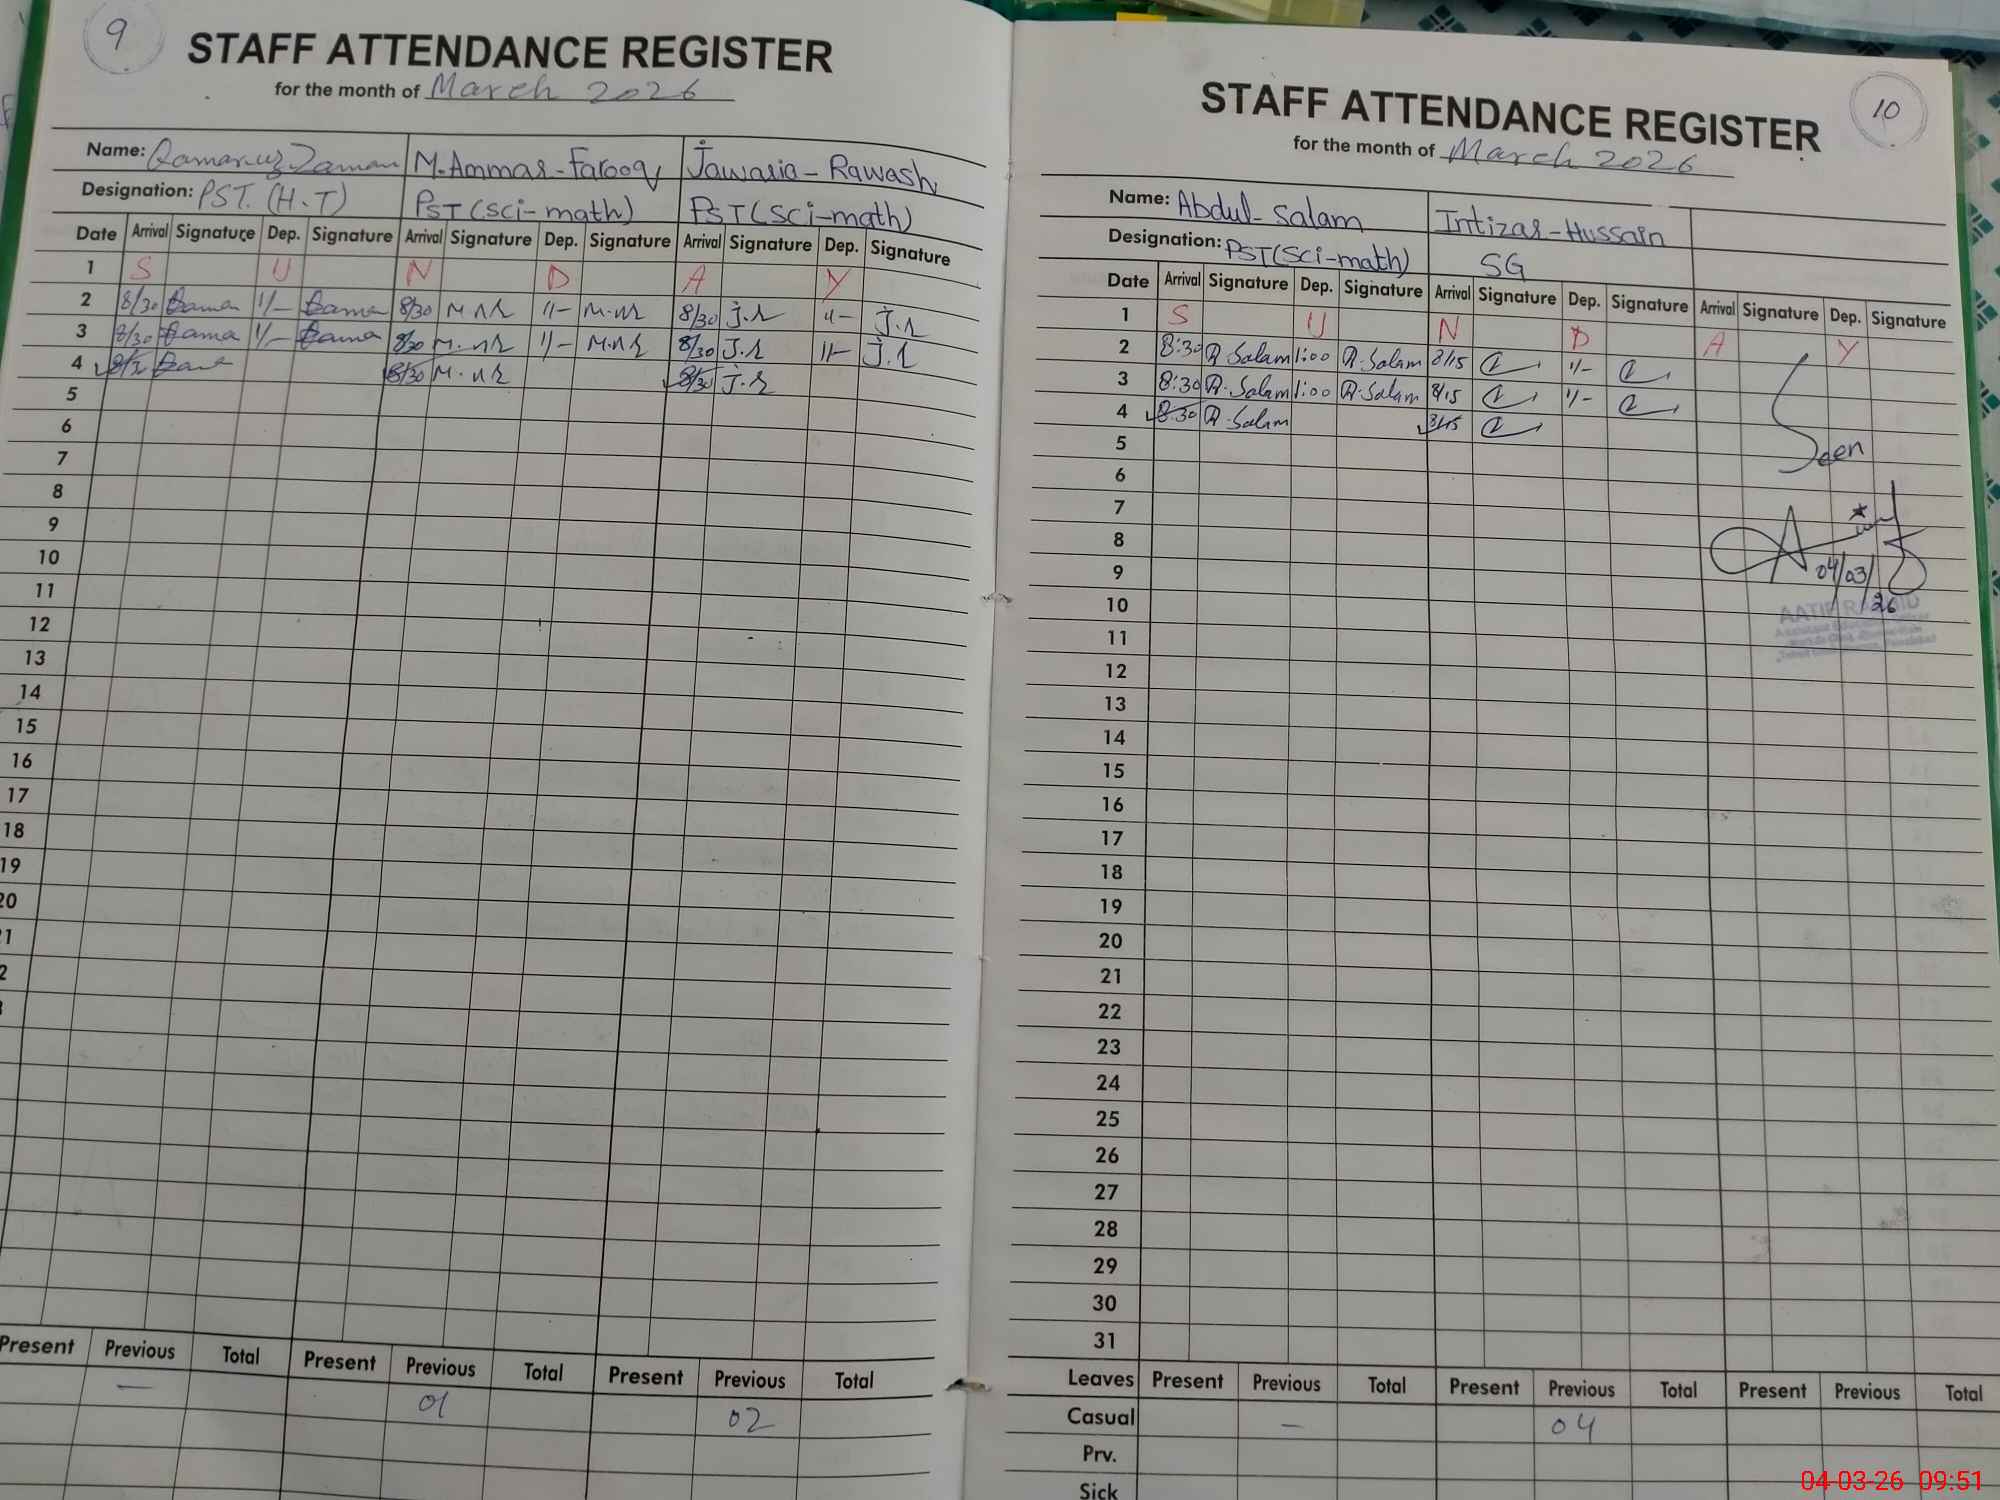 9
STAFF ATTENDANCE REGISTER
for the month of March 2026
Name: Qamar-uz-Zaman M. Ammar-Farooq Jawaria-Rawash
Designation: PST. (H.T) PST (Sci-math) PST (Sci-math)
Date Arrival Signature Dep. Signature Arrival Signature Dep. Signature Arrival Signature Dep. Signature
1 S U N D A Y
2 8/30 1/- 8/30 1/- 8/30 J.r 1/- J.r
3 8/30 1/- 8/30 1/- 8/30 J.r 1/- J.r
4 8/30 8/30 8/30 J.r
5
6
7
8
9
10
11
12
13
14
15
16
17
18
19
20
Present Previous Total Present Previous Total Present Previous Total
— 01 02
10
STAFF ATTENDANCE REGISTER
for the month of March 2026
Name: Abdul-Salam Intizar-Hussain
Designation: PST (Sci-math) SG
Date Arrival Signature Dep. Signature Arrival Signature Dep. Signature Arrival Signature Dep. Signature
1 S U N D A Y
2 8:30 A.Salam 1:00 A.Salam 8/15 1/-
3 8:30 A.Salam 1:00 A.Salam 8/15 1/-
4 8:30 A.Salam 8/15
5
Seen
6
7
8
9
04/03/26
10
AATIF RASHID
11
12
13
14
15
16
17
18
19
20
21
22
23
24
25
26
27
28
29
30
31
Leaves Present Previous Total Present Previous Total Present Previous Total
Casual — 04
Prv.
Sick
04-03-26 09:51